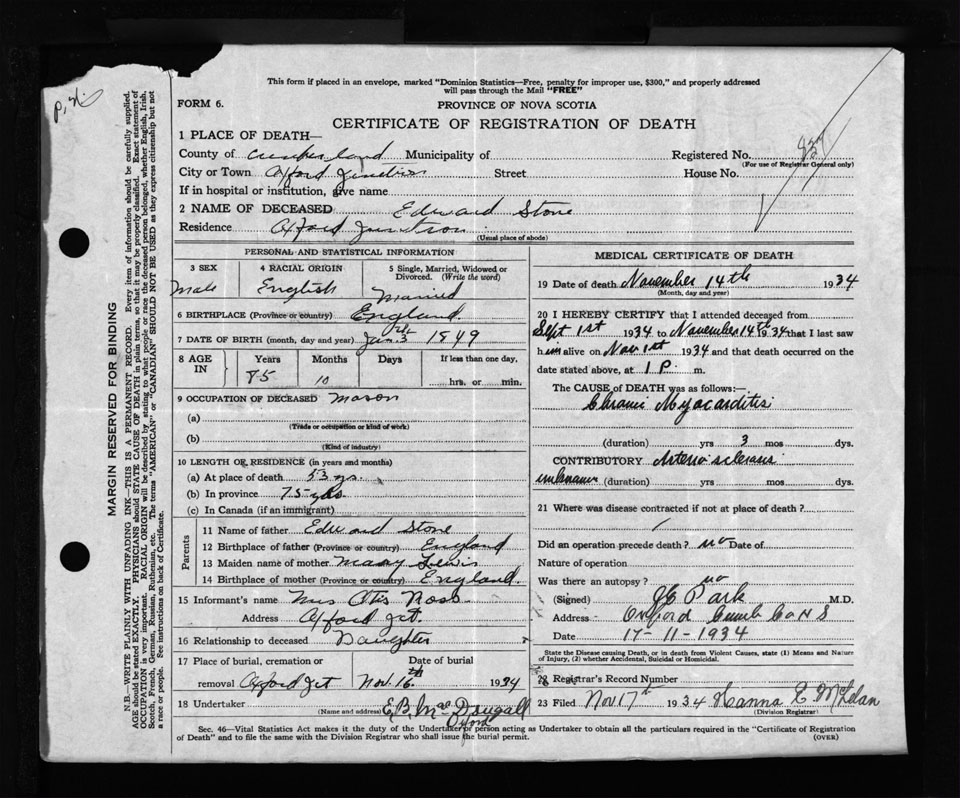 This form if placed in an envelope, marked "Dominion Statistics—Free, penalty for improper use, $300," and properly addressed
will pass through the Mail "FREE"
FORM 6.
PROVINCE OF NOVA SCOTIA
CERTIFICATE OF REGISTRATION OF DEATH
837
1 PLACE OF DEATH—
County of Cumberland Municipality of Registered No.
(For use of Registrar General only)
City or Town Oxford Junction Street House No.
If in hospital or institution, give name
2 NAME OF DECEASED Edward Stone
Residence Oxford Junction
(Usual place of abode)
PERSONAL AND STATISTICAL INFORMATION
3 SEX 4 RACIAL ORIGIN 5 Single, Married, Widowed or
Divorced. (Write the word)
Male English Married
6 BIRTHPLACE (Province or country) England
7 DATE OF BIRTH (month, day and year) Jan. 3 1849
8 AGE IN Years Months Days If less than one day,
85 10 hrs. or min.
9 OCCUPATION OF DECEASED Mason
(a)
(Trade or occupation or kind of work)
(b)
(Kind of industry)
10 LENGTH OF RESIDENCE (in years and months)
(a) At place of death 53 ys.
(b) In province 75 yds
(c) In Canada (if an immigrant)
Parents
11 Name of father Edward Stone
12 Birthplace of father (Province or country) England
13 Maiden name of mother Mary Lewis
14 Birthplace of mother (Province or country) England.
15 Informant's name Mrs Otis Ross
Address Oxford Jct.
16 Relationship to deceased Daughter
17 Place of burial, cremation or Date of burial
removal Oxford Jct Nov. 16th 1934
18 Undertaker E.B. MacDougall
(Name and address) Oxford
MEDICAL CERTIFICATE OF DEATH
19 Date of death November 14th 1934
(Month, day and year)
20 I HEREBY CERTIFY that I attended deceased from
Sept 1st 1934 to November 14th 1934 that I last saw
him alive on Nov 1st 1934 and that death occurred on the
date stated above, at 1 P. m.
The CAUSE OF DEATH was as follows:—
Chronic Myocarditis
(duration) yrs 3 mos dys.
CONTRIBUTORY Arterio sclerosis
unknown (duration) yrs mos dys.
21 Where was disease contracted if not at place of death?
Did an operation precede death? no Date of
Nature of operation
Was there an autopsy? no
(Signed) Park M.D.
Address Oxford Cumb Co N S
Date 17-11-1934
State the Disease causing Death, or in death from Violent Causes, state (1) Means and Nature
of Injury, (2) whether Accidental, Suicidal or Homicidal.
22 Registrar's Record Number
23 Filed Nov 17th 1934 Hanna E
(Division Registrar)
Sec. 46—Vital Statistics Act makes it the duty of the Undertaker or person acting as Undertaker to obtain all the particulars required in the "Certificate of Registration
of Death" and to file the same with the Division Registrar who shall issue the burial permit. (OVER)
MARGIN RESERVED FOR BINDING
N.B.—WRITE PLAINLY WITH UNFADING INK—THIS IS A PERMANENT RECORD. Every item of information should be carefully supplied.
AGE should be stated EXACTLY. PHYSICIANS should STATE CAUSE OF DEATH in plain terms, so that it may be properly classified. Exact statement of
OCCUPATION is very important. RACIAL ORIGIN will be described by stating to what people or race the deceased person belonged, whether English, Irish,
Scotch, French, German, Russian, Ruthenian, etc. The terms "AMERICAN" or "CANADIAN" SHOULD NOT BE USED as they express citizenship but not
a race or people. See instructions on back of Certificate.